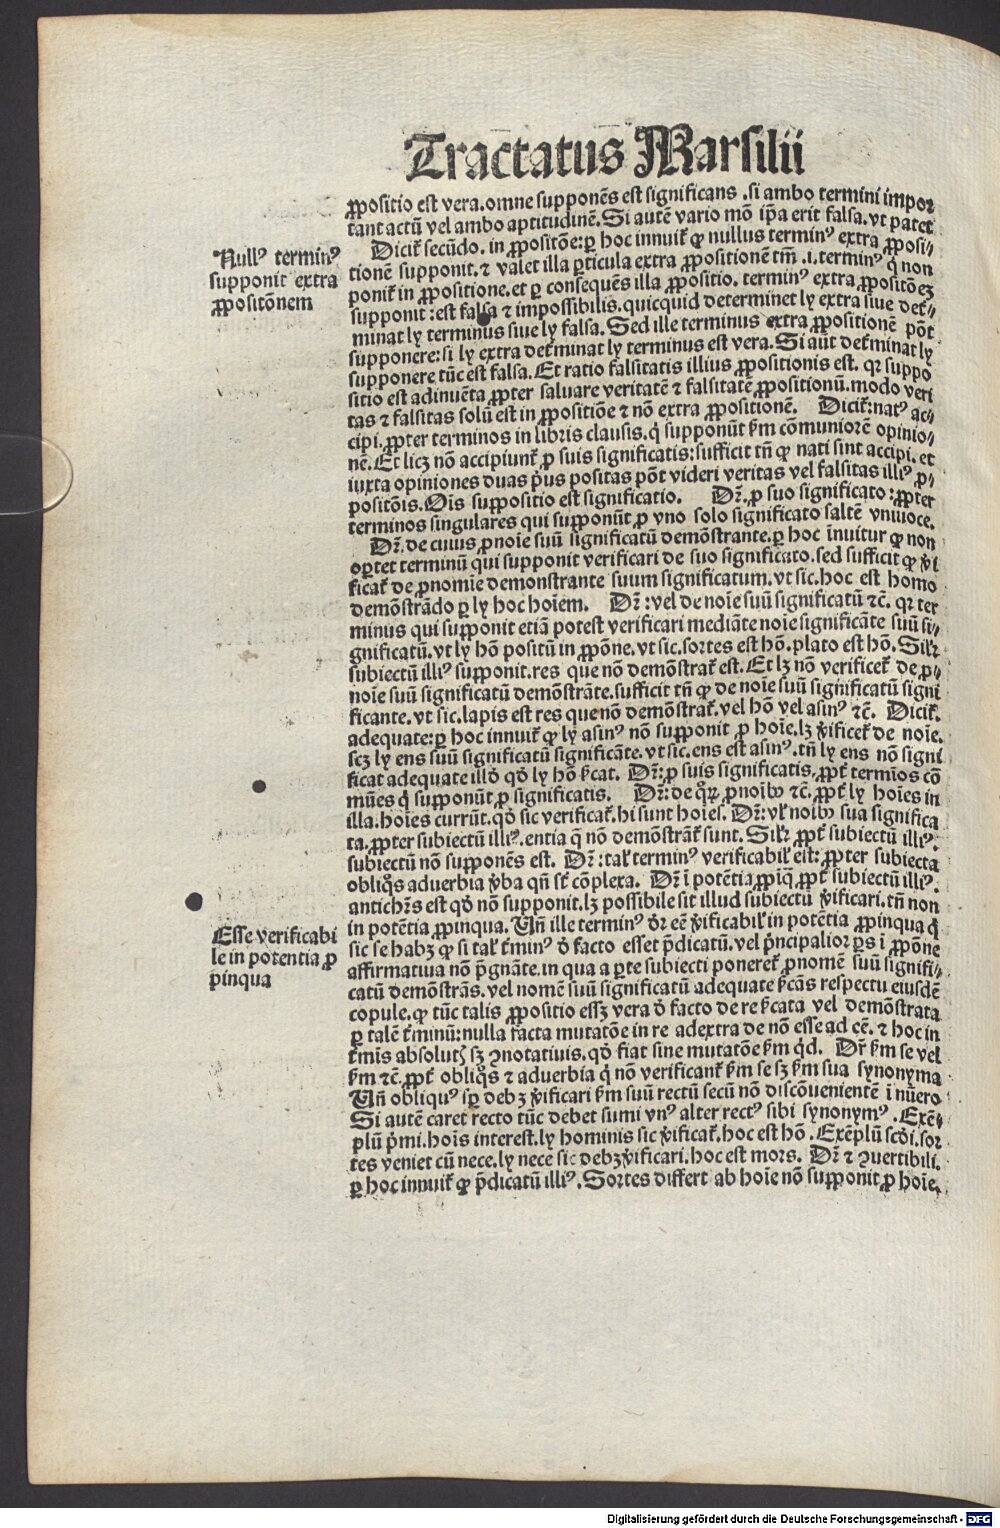 Tractatus Marsilii
ꝓpositio est vera. omne supponēs est significans . si ambo termini impor
tant actū vel ambo aptitudinē. Si autē vario mō ip̄a erit falsa. vt patet
Dicit᷑ secūdo. in ꝓpositōe: ꝑ hoc innuit᷑ ꝙ nullus terminꝰ extra ꝓposi⸗
tionē supponit. ⁊ valet illa ꝑticula extra ꝓpositionē tm̄ .i. terminꝰ q̇ non
ponit᷑ in ꝓpositione. et ꝑ consequēs illa ꝓpositio. terminꝰ extra ꝓpositōeꝫ
supponit : est falsa ⁊ impossibilis. quicquid determinet ly extra siue det̄⸗
minat ly terminus siue ly falsa. Sed ille terminus extra ꝓpositionē pōt
supponere: si ly extra det̄minat ly terminus est vera. Si aūt det̄minat ly
supponere tūc est falsa. Et ratio falsitatis illius ꝓpositionis est. qꝛ suppo
sitio est adinuēta ꝓpter saluare veritatē ⁊ falsitatē ꝓpositionū. modo veri
tas ⁊ falsitas solū est in ꝓpositiōe ⁊ nō extra ꝓpositionē. Dicit᷑: natꝰ ac⸗
cipi. ꝓpter terminos in libris clausis. q̇ supponūt km̄ cōmuniorē opinio⸗
nē. Et licꝫ nō accipiunt᷑ ꝓ suis significatis: sufficit tn̄ ꝙ nati sint accipi. et
iuxta opiniones duas p̄us positas pōt videri veritas vel falsitas illiꝰ ꝓ⸗
positōis. Ois suppositio est significatio. Dr̄. ꝓ suo significato : ꝓpter
terminos singulares qui supponūt ꝓ vno solo significato saltē vniuoce.
Dr̄. de cuius ꝓnoīe suū significatū demōstrante. ꝑ hoc īnuitur ꝙ non
oꝑtet terminū qui supponit verificari de suo significato. sed sufficit ꝙ v̓i
ficat᷑ de ꝓnomīe demonstrante suum significatum. vt sic. hoc est homo
demōstrādo ꝑ ly hoc hoīem. Dr̄ : vel de noīe suū significatū ⁊c̄. qꝛ ter
minus qui supponit etiā potest verificari mediāte noīe significāte suū si⸗
gnificatū. vt ly hō positū in ꝓpōne. vt sic. sortes est hō. plato est hō. Silꝛ
subiectū illiꝰ supponit. res que nō demōstrat᷑ est. Et lꝫ nō verificet᷑ de ꝓ⸗
noīe suū significatū demōstrāte. sufficit tn̄ ꝙ de noīe suū significatū signi
ficante. vt sic. lapis est res que nō demōstrat᷑. vel hō vel asinꝰ ⁊c̄. Dicit᷑.
adequate: ꝑ hoc innuit᷑ ꝙ ly asinꝰ nō supponit ꝓ hoīe. lꝫ v̓ificet᷑ de noīe.
scꝫ ly ens suū significatū significāte. vt sic. ens est asinꝰ. tn̄ ly ens nō signi
ficat adequate illd̓ qd̓ ly hō s̄cat. Dr̄: ꝓ suis significatis. ꝓpt̄ termīos cō
mūes q̇ supponūt ꝓ significatis. Dr̄: de qͦꝝ ꝓnoībꝰ ⁊c̄. ꝓpt̄ ly hoīes in
illa. hoīes currūt. qd̓ sic verificat᷑. hi sunt hoīes. Dr̄: vl̓ noībꝰ sua significa
ta. ꝓpter subiectū illiꝰ. entia q̄ nō demōstrāt᷑ sunt. Silꝛ ꝓpt̄ subiectū illiꝰ.
subiectū nō supponēs est. Dr̄ : tal̓ terminꝰ verificabil̓ est: ꝓpter subiecta
obliqͦs aduerbia v̓ba qn̄ st̄ cōplexa. Dr̄ ī potētia ꝓpīq̄ ꝓpt̄ subiectū illiꝰ.
antichr̄s est qd̓ nō supponit. lꝫ possibile sit illud subiectū v̓ificari. tn̄ non
in potētia ꝓpinqua. Un̄ ille terminꝰ d̓r eē v̓ificabil̓ in potētia ꝓpinqua q̇
sic se habꝫ ꝙ si tal̓ t̄minꝰ d̓ facto esset p̄dicatū. vel p̄ncipalior ꝑs ī ꝓpōne
affirmatiua nō p̄gnāte. in qua a ꝑte subiecti poneret᷑ ꝓnomē suū signifi⸗
catū demōstrās. vel nomē suū significatū adequate s̄cās respectu eiusdē
copule. ꝙ tūc talis ꝓpositio essꝫ vera d̓ facto de re s̄cata vel demōstrata
ꝑ talē t̄minū: nulla facta mutatōe in re adextra de nō esse ad eē. ⁊ hoc in
t̄mīs absolutꝭ sꝫ ꝯnotatiuis. qd̓ fiat sine mutatōe km̄ qd̓. Dr̄ km̄ se vel
km̄ ⁊c̄. ꝓpt̄ obliqͦs ⁊ aduerbia q̇ nō verificant᷑ km̄ se sꝫ km̄ sua synonyma
Un̄ obliquꝰ sꝑ debꝫ v̓ificari km̄ suū rectū secū nō discōuenientē ī nūero
Si autē caret recto tūc debet sumi vnꝰ alter rectꝰ sibi synonymꝰ . Exē⸗
plū p̄mi. hoīs interest. ly hominis sic v̓ificat᷑. hoc est hō . Exēplū scd̓i. sor
tes veniet cū nece. ly nece sic debꝫ v̓ificari. hoc est mors. Dr̄ ⁊ ꝯuertibili.
ꝑ hoc innuit᷑ ꝙ p̄dicatū illiꝰ. Sortes differt ab hoīe nō supponit ꝓ hoīe.
Nullꝰ terminꝰ
supponit extra
ꝓpositōnem
Esse verificabi
le in potentia ꝓ
pinqua
Digitalisierung gefördert durch die Deutsche Forschungsgemeinschaft - DFG